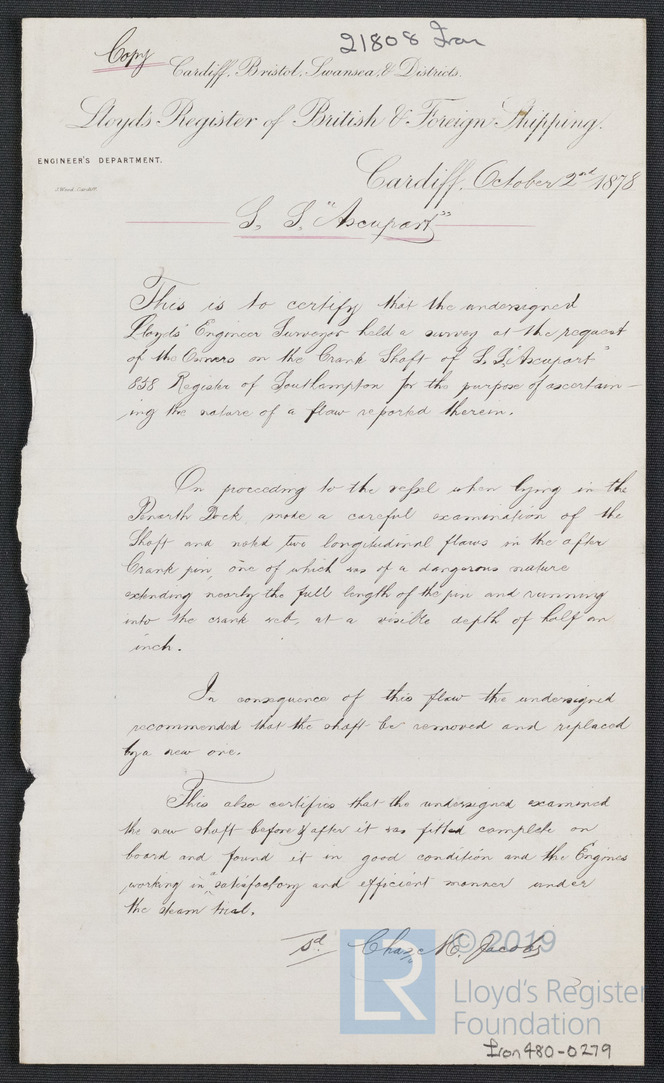 Copy
21808 Iron
Cardiff, Bristol, Swansea, & Districts.
Lloyd's Register of British & Foreign Shipping.
ENGINEER'S DEPARTMENT.
Cardiff, October 2nd 1878
S. S. "Ascupart"
This is to certify that the undersigned
Lloyds' Engineer Surveyor held a survey at the request
of the Owners on the Crank Shaft of S. S. "Ascupart"
858 Register of Southampton for the purpose of ascertain-
ing the nature of a flaw reported therein.
On proceeding to the vessel when lying in the
Penarth Dock made a careful examination of the
Shaft and noted two longitudinal flaws in the after
Crank pin, one of which was of a dangerous nature
extending nearly the full length of the pin and running
into the crank web, at a visible depth of half an
inch.
In consequence of this flaw the undersigned
recommended that the shaft be removed and replaced
by a new one.
This also certifies that the undersigned examined
the new shaft before & after it was fitted complete on
board and found it in good condition and the Engines
working in a satisfactory and efficient manner under
the steam trial.
sd/ Chas. M. Jacobs
© 2019
LR
Lloyd's Register
Foundation
Iron480-0279